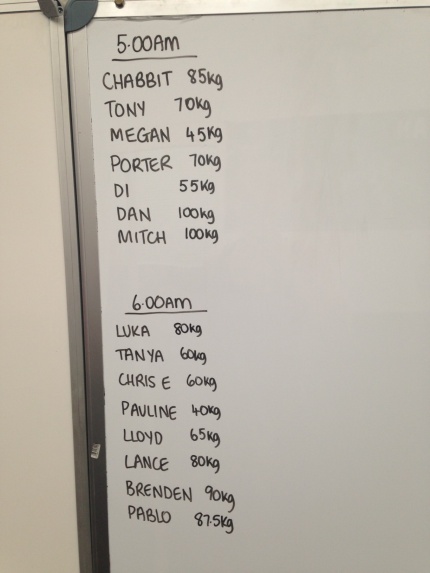 5.00AM
CHABBIT 85kg
TONY 70kg
MEGAN 45kg
PORTER 70kg
DI 55kg
DAN 100kg
MITCH 100kg
6.00AM
LUKA 80kg
TANYA 60kg
CHRIS E 60kg
PAULINE 40kg
LLOYD 65kg
LANCE 80kg
BRENDEN 90kg
PABLO 87.5kg